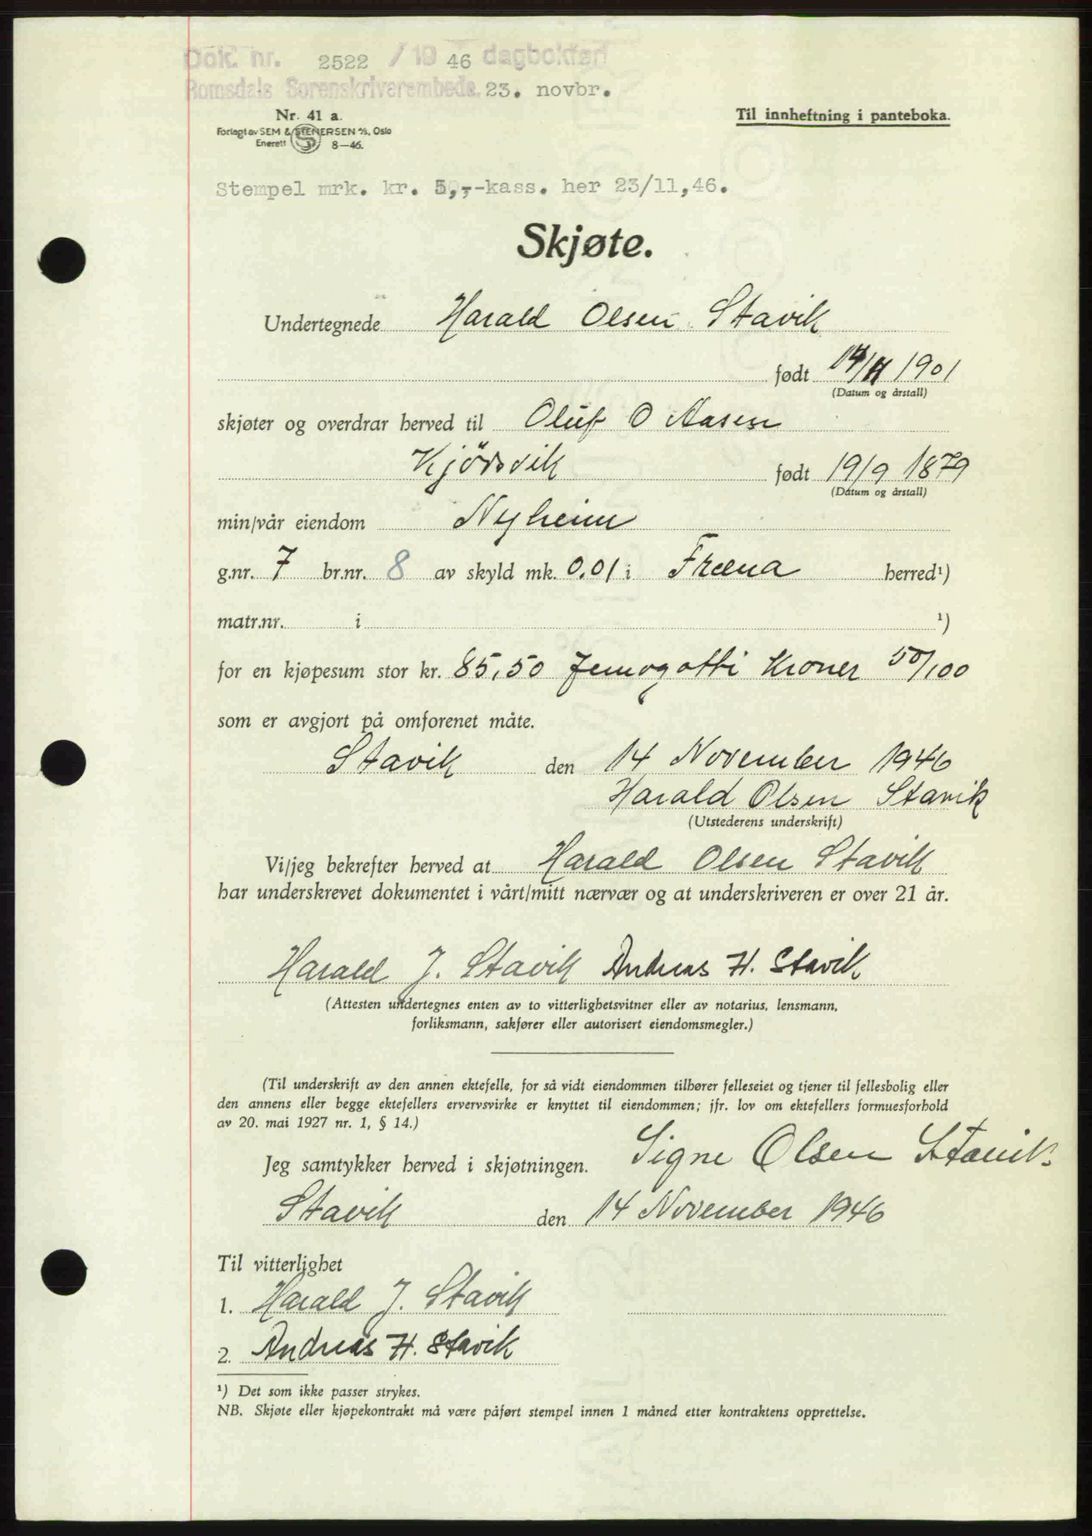 Dok. nr. 2522 / 19 46 dagbokført
Romsdals Sorenskriverembede. 23. novbr.
Nr. 41 a.
Forlagt av SEM & STENERSEN A/S, Oslo
Enerett 8—46.
Til innheftning i panteboka.
Stempel mrk. kr. 5,- kass. her 23/11,46.
Skjøte.
Undertegnede Harald Olsen Stavik
født 14/11 1901
(Datum og årstall)
skjøter og overdrar herved til Oluf O Aasen
Kjörsvik født 19/9 1879
(Datum og årstall)
min/vår eiendom Nyheim
g.nr. 7 br.nr. 8 av skyld mk. 0.01 i Fræna herred¹)
matr.nr. i ¹)
for en kjøpesum stor kr. 85,50 femogotti Kroner 50/100
som er avgjort på omforenet måte.
Stavik den 14 November 1946
Harald Olsen Stavik
(Utstederens underskrift)
Vi/jeg bekrefter herved at Harald Olsen Stavik
har underskrevet dokumentet i vårt/mitt nærvær og at underskriveren er over 21 år.
Harald J. Stavik Andreas H. Stavik
(Attesten undertegnes enten av to vitterlighetsvitner eller av notarius, lensmann,
forliksmann, sakfører eller autorisert eiendomsmegler.)
(Til underskrift av den annen ektefelle, for så vidt eiendommen tilhører felleseiet og tjener til fellesbolig eller
den annens eller begge ektefellers ervervsvirke er knyttet til eiendommen; jfr. lov om ektefellers formuesforhold
av 20. mai 1927 nr. 1, § 14.)
Jeg samtykker herved i skjøtningen. Signe Olsen Stavik
Stavik den 14 November 1946
Til vitterlighet
1. Harald J. Stavik
2. Andreas H. Stavik
¹) Det som ikke passer strykes.
NB. Skjøte eller kjøpekontrakt må være påført stempel innen 1 måned etter kontraktens opprettelse.